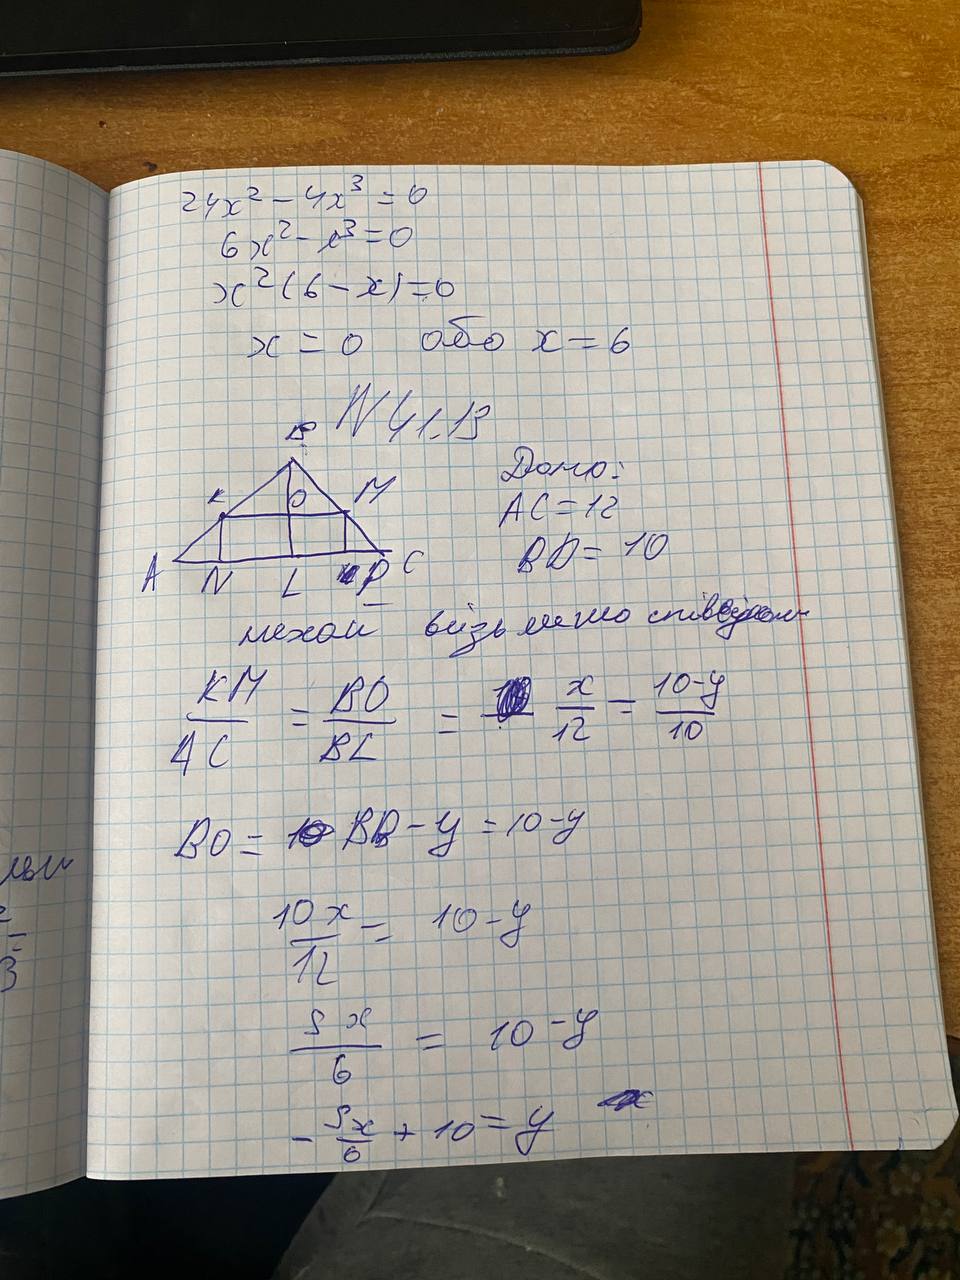 24x² - 4x³ = 0
6x² - x³ = 0
x²(6 - x) = 0
x = 0 або x = 6
N 41.13
B
K O M
A N L P C
Дано:
AC = 12
BD = 10
нехай візьмемо
KM/AC = BO/BL = x/12 = 10-y/10
BO = BD - y = 10 - y
10x/12 = 10 - y
5x/6 = 10 - y
- 5x/6 + 10 = y
3